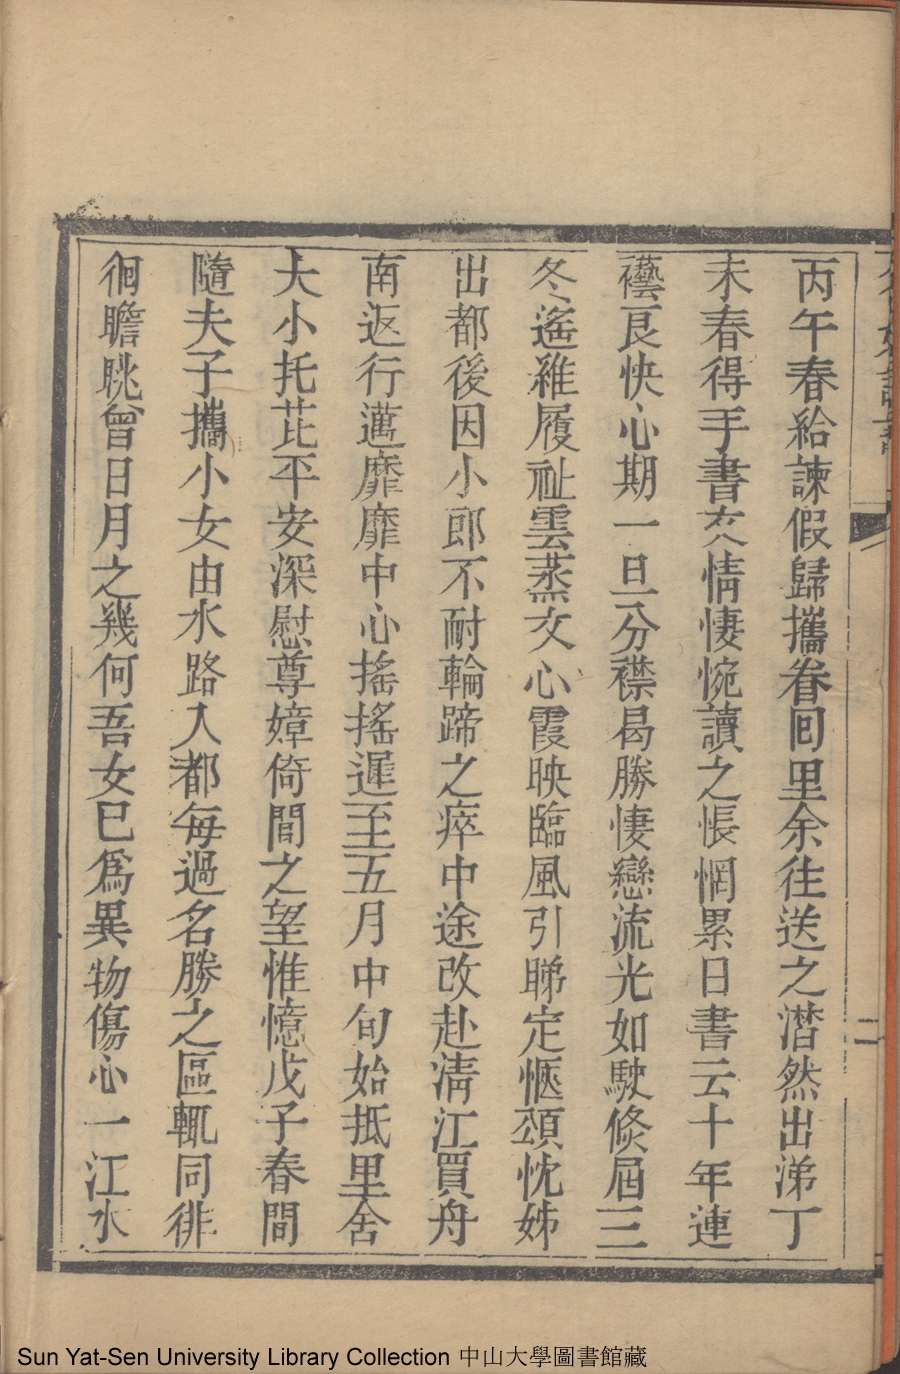 丙午春給諫假歸攜眷回里余往送之潸然出涕丁
未春得手書文情悽惋讀之悵惘累日書云十年連
襼良快心期一旦分襟曷勝悽戀流光如駛倏屆三
冬遙維履祉雲蒸文心霞映臨風引睇定愜頌忱姊
出都後因小郎不耐輪蹄之瘁中途改赴淸江買舟
南返行邁靡靡中心搖搖遲至五月中旬始抵里舍
大小托芘平安深慰尊嫜倚閭之望惟憶戊子春間
隨夫子攜小女由水路入都每過名勝之區輒同徘
徊瞻眺曾日月之幾何吾女已爲異物傷心一江水
二
Sun Yat-Sen University Library Collection 中山大學圖書館藏